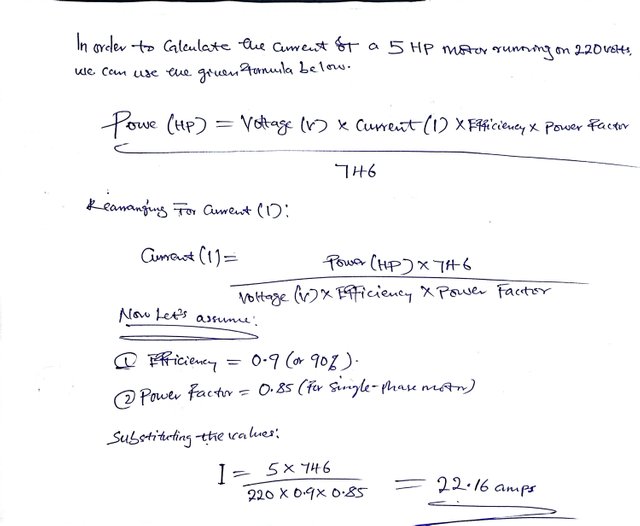 In order to Calculate the current of a 5 HP motor running on 220 volts,
we can use the given formula below.
Powe (HP) = Voltage (V) × Current (I) × Efficiency × Power Factor
746
Rearranging For Current (I):
Current (I) =
Power (HP) × 746
Voltage (V) × Efficiency × Power Factor
Now Let's assume:
① Efficiency = 0.9 (or 90%).
② Power Factor = 0.85 (For Single-phase motor)
Substituting the values:
I = 5 × 746 = 22.16 amps
220 × 0.9 × 0.85